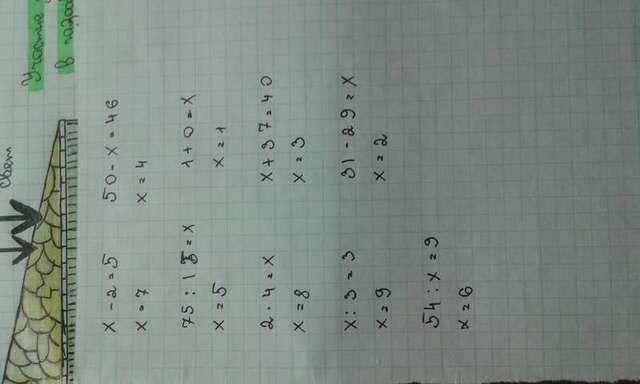 Участие
в
Свет
x - 2 = 5
x = 7
50 - x = 46
x = 4
75 : 15 = x
x = 5
1 + 0 = x
x = 1
2 · 4 = x
x = 8
x + 37 = 40
x = 3
x : 3 = 3
x = 9
31 - 29 = x
x = 2
54 : x = 9
x = 6